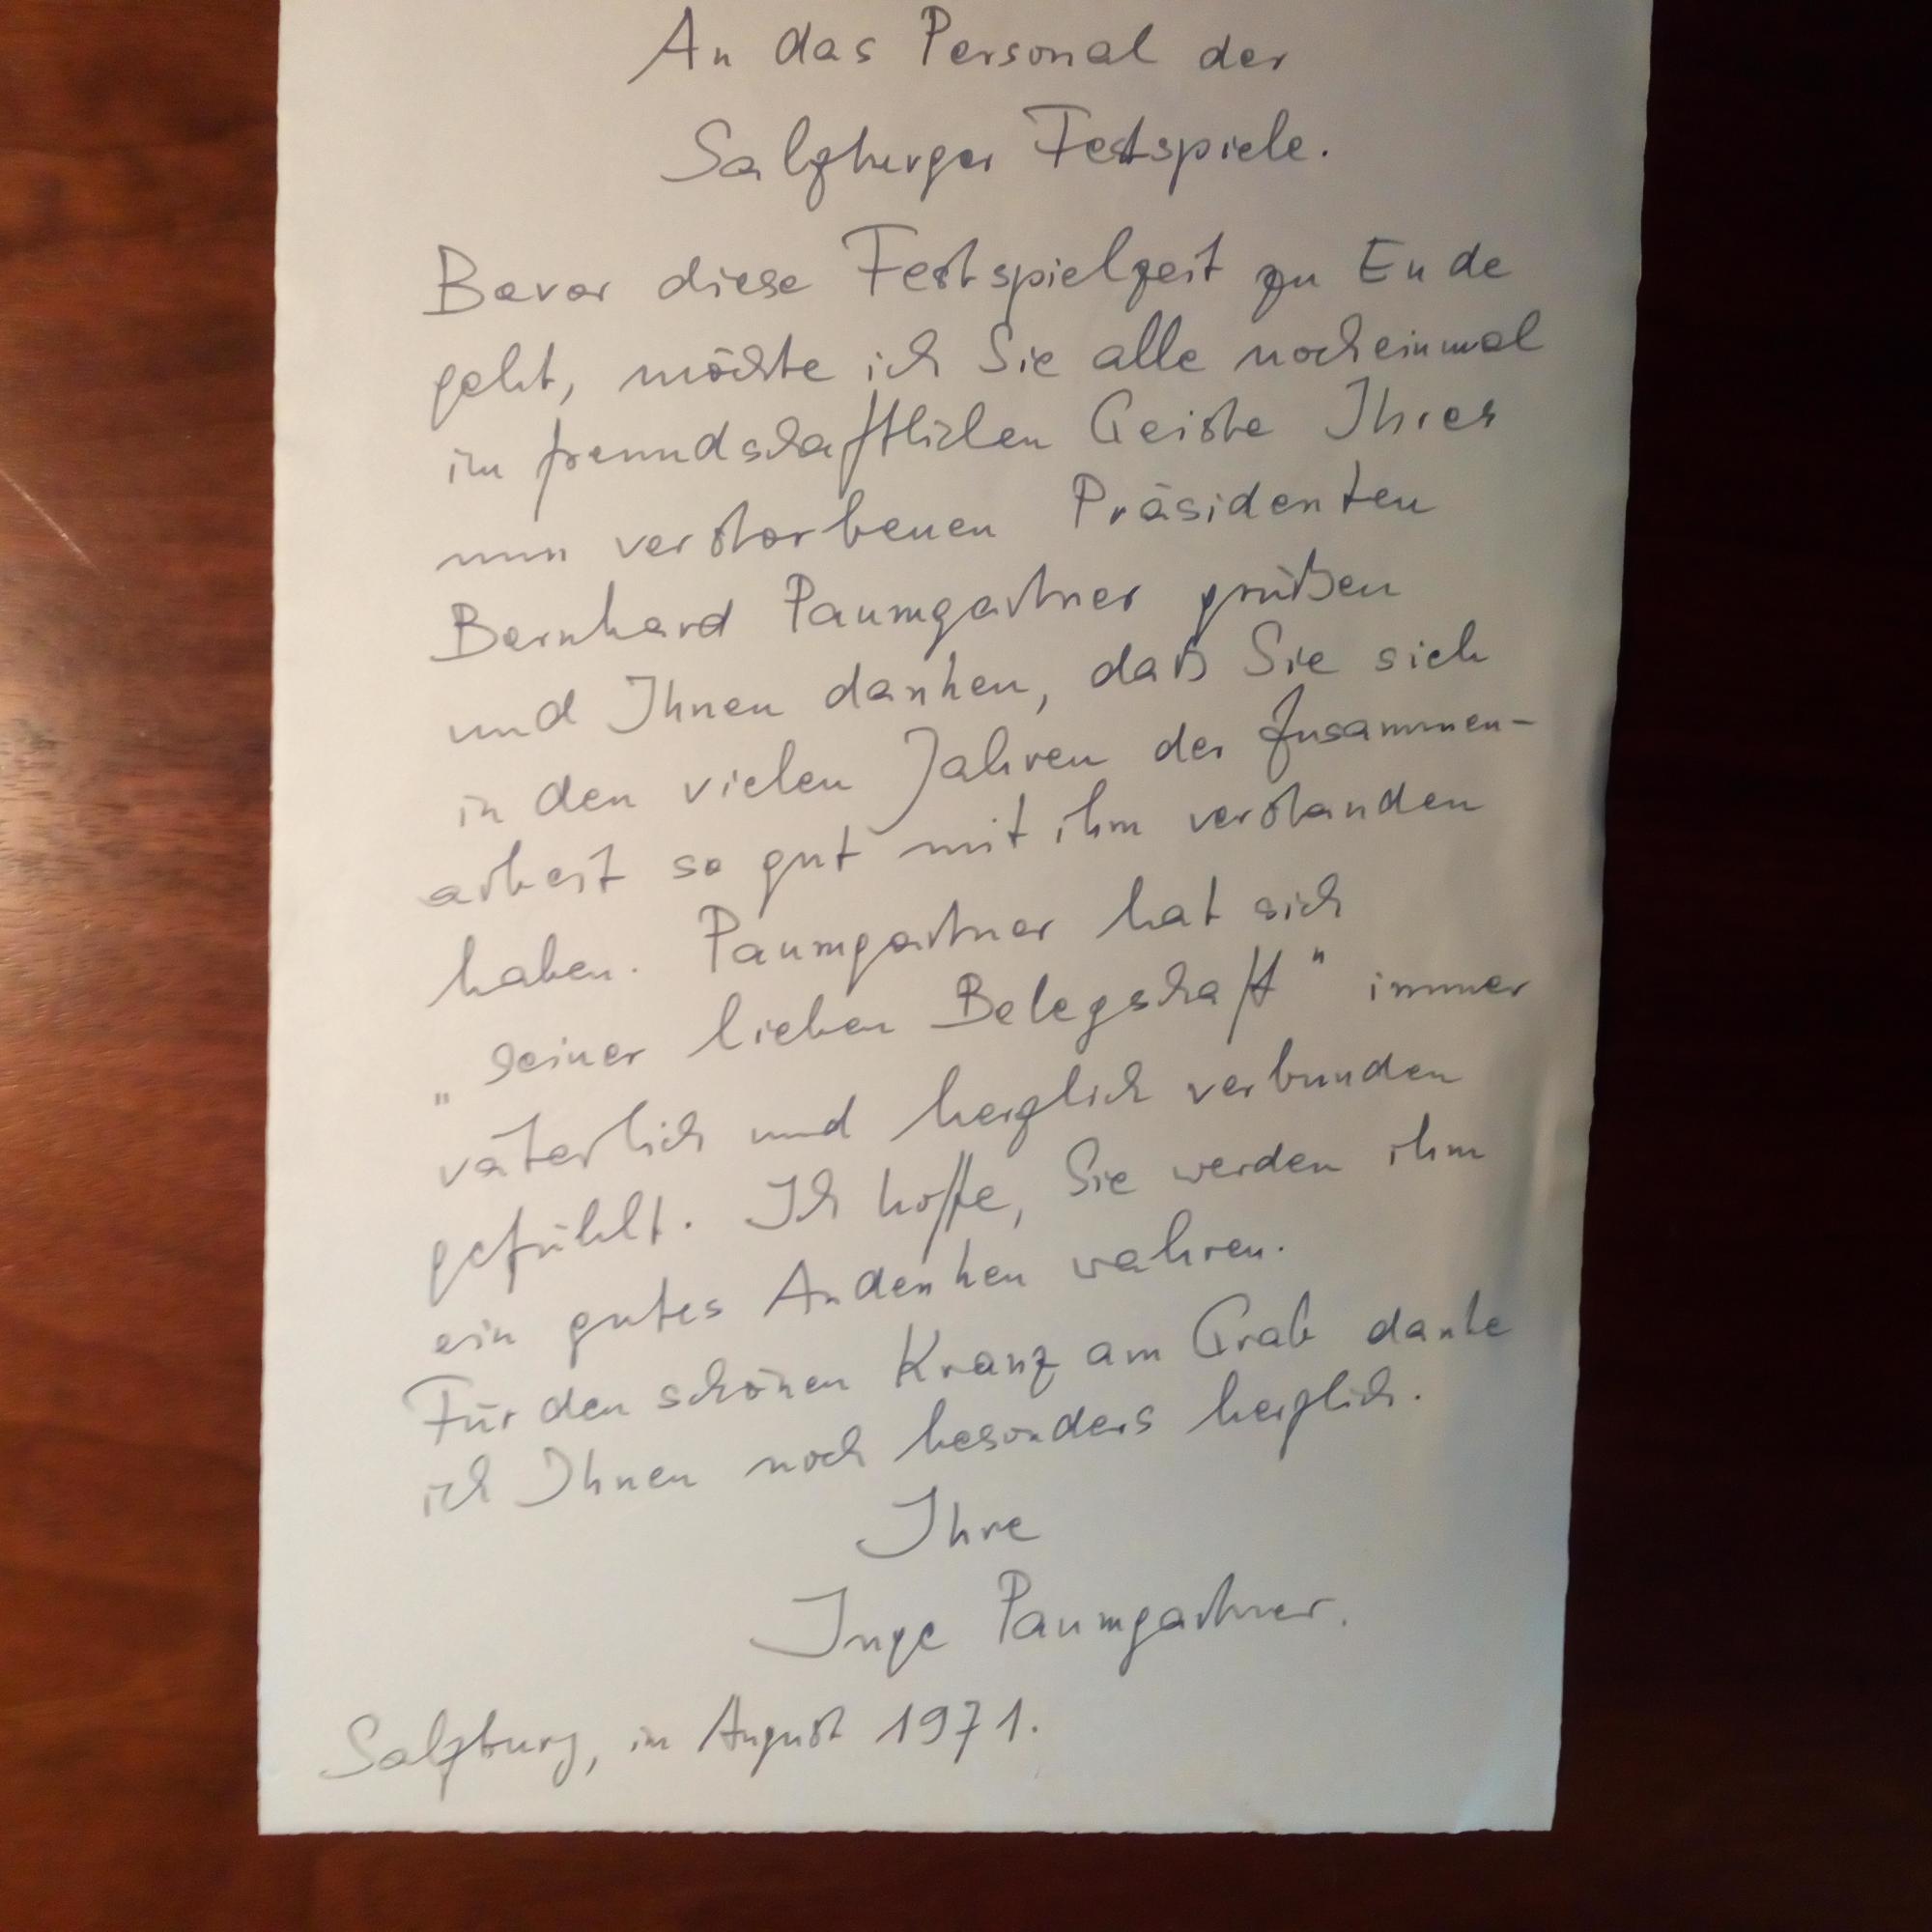 An das Personal der
Salzburger Festspiele.
Bevor diese Festspielzeit zu Ende
geht, möchte ich Sie alle nocheinmal
im freundschaftlichen Geiste Ihres
nun verstorbenen Präsidenten
Bernhard Paumgartner grüßen
und Ihnen danken, daß Sie sich
in den vielen Jahren der Zusammen-
arbeit so gut mit ihm verstanden
haben. Paumgartner hat sich
"seiner lieben Belegschaft" immer
väterlich und herzlich verbunden
gefühlt. Ich hoffe, Sie werden ihm
ein gutes Andenken wahren.
Für den schönen Kranz am Grab danke
ich Ihnen noch besonders herzlich.
Ihre
Inge Paumgartner.
Salzburg, im August 1971.